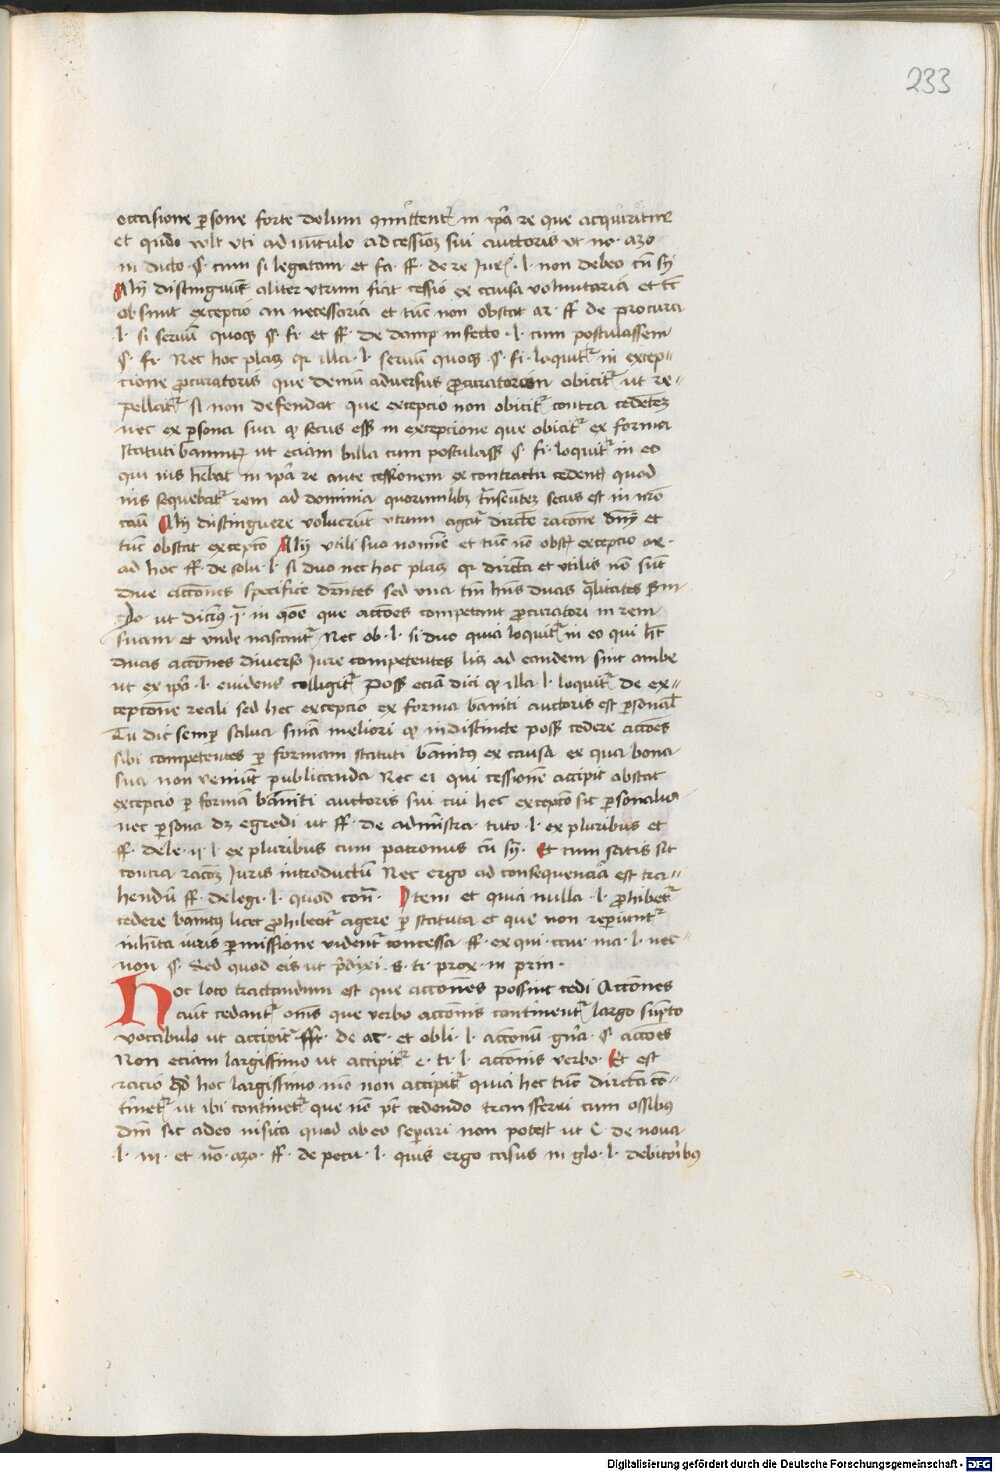 233
occasione persone forte dolum committentis in ipsa re que acquiritur
et quando vult uti ad vinculo ad cessionem sui auctoris ut no. azo
in dicto §. cum si legatam et fa. ff. de re Jur. l. non debeo cum sy
Alij distinguunt aliter utrum fiat cessio ex causa voluntaria et tunc
obsunt excepcio an necessaria et tunc non obstat ar. ff de procura
l. si servum quoque §. fi. et ff. de damp infecto. l. cum postulassem
§. fi. Nec hoc placet quia illa. l. servum quoque §. fi. loquitur in excep-
cione procuratoris que demum adversus procuratorem obicitur ut re-
pellatur si non defendat que excepcio non obicitur contra cedentem
nec ex persona sua quod secus esse in excepcione que obicitur ex forma
statuti banniti ut eciam billa cum postulasse §. fi. loquitur in eo
qui ius habebat in ipsa re ante cessionem ex contractu cedentis quod
ius sequebatur rem ad dominia quorumlibet transeuntem secus est in nostro
casu Alij distinguere voluerunt utrum agatur directe racione domini et
tunc obstat excepcio Alij utili suo nomine et tunc non obstat excepcio ar.
ad hoc ff. de solu. l. si duo nec hoc placet quia directa et utilis non sunt
due acciones specifice differentes sed una tantum habens duas qualitates secundum
Ja ut dicimus. j. in questione que acciones competant procuratori in rem
suam et unde nascantur Nec ob. l. si duo quia loquitur in eo qui habet
duas acciones diverso Jure competentes licet ad eandem sint ambe
ut ex ipsa. l. evidenter colligitur posset eciam dici quod illa. l. loquitur de ex-
cepcione reali sed hec excepcio ex forma banniti auctoris est personalis
Tu dic semper salva sententia meliori quod indistincte posse cedere acciones
sibi competentes per formam statuti bannitus ex causa ex qua bona
sua non veniunt publicanda Nec ei qui cessionem accipit obstat
excepcio per formam banniti auctoris sui cui hec excepcio sit personalis
nec persona debet egredi ut ff. de administra. tuto. l. ex pluribus et
ff. de le. ij. l. ex pluribus cum patronus cum sy. Et cum satis sit
contra racionem Juris introductum Nec ergo ad consequenciam est tra-
hendum ff. de legi. l. quod con. Item et quia nulla. l. prohibetur
cedere bannitus licet prohibeatur agere per statuta et que non reperiuntur
inhibita iuris permissione videntur concessa ff. ex qui. cau. ma. l. nec-
non §. sed quod eis ut predixi. s. ti. prox. in prin.
Hoc loco tractandum est que acciones possint cedi Acciones
aut cedantur omnes que verbo accionis continentur largo sumpto
vocabulo ut accipitur ff. de ac. et obli. l. accionum genera. §. acciones
Non eciam largissimo ut accipitur e. ti. l. accionis verbo. Et est
racio quod hoc largissimo modo non accipitur quia hec tunc directa con-
tinetur ut ibi continetur que non potest cedendo transferri cum ossibus
domini sit adeo infixa quod ab eo separari non potest ut C. de nova.
l. iii. et no. azo. ff. de pecu. l. quis ergo casus in glo. l. debitoribus
Digitalisierung gefördert durch die Deutsche Forschungsgemeinschaft - DFG